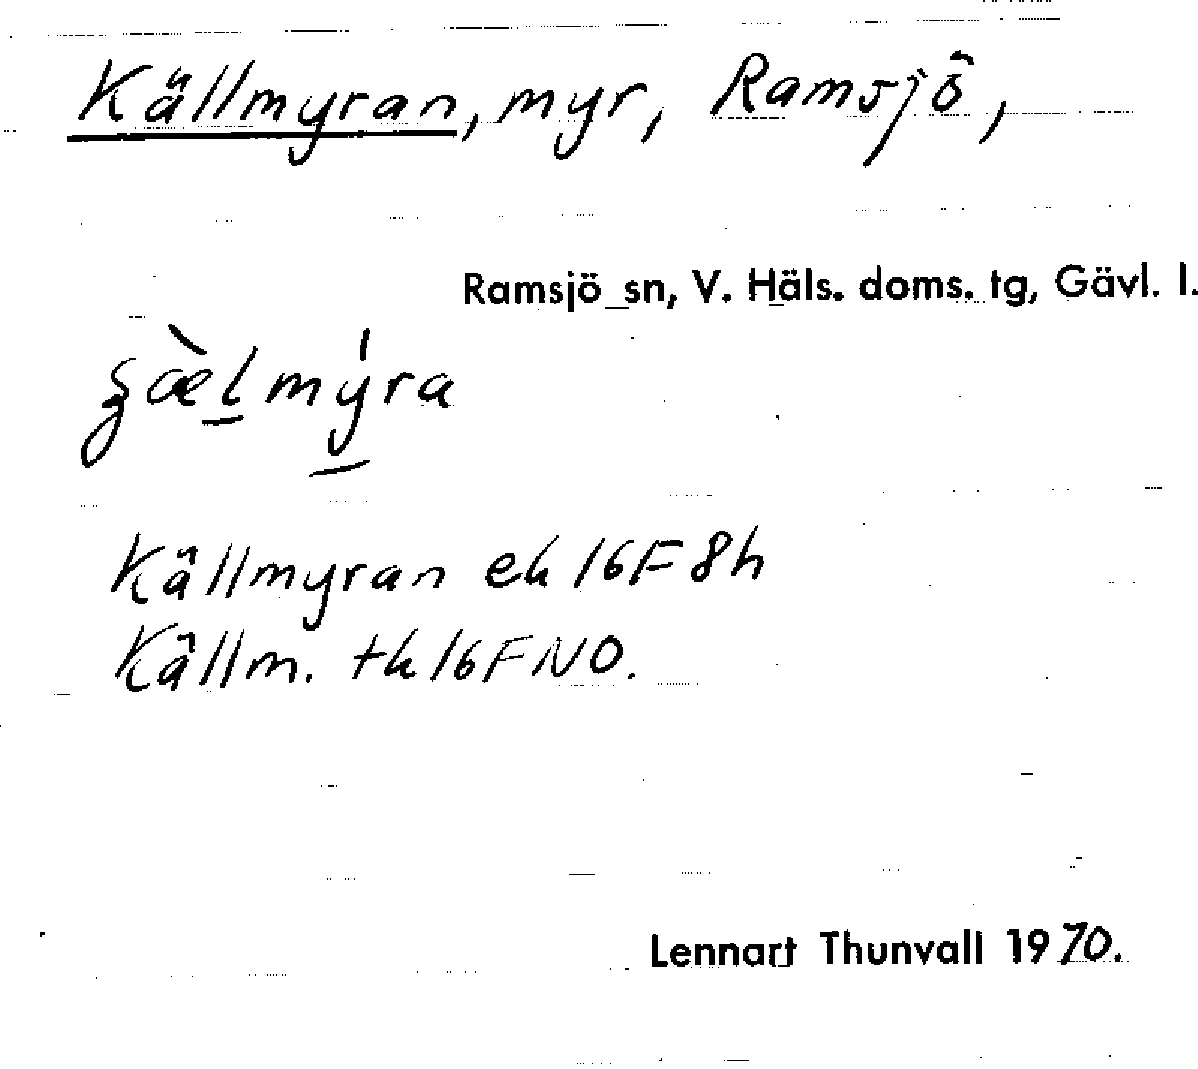 Källmyran, myr, Ramsjö,
Ramsjö sn, V. Häls. doms. tg, Gävl. l.
Källmyran ek 16F 8h
Källm. tk 16F NO.
Lennart Thunvall 1970.